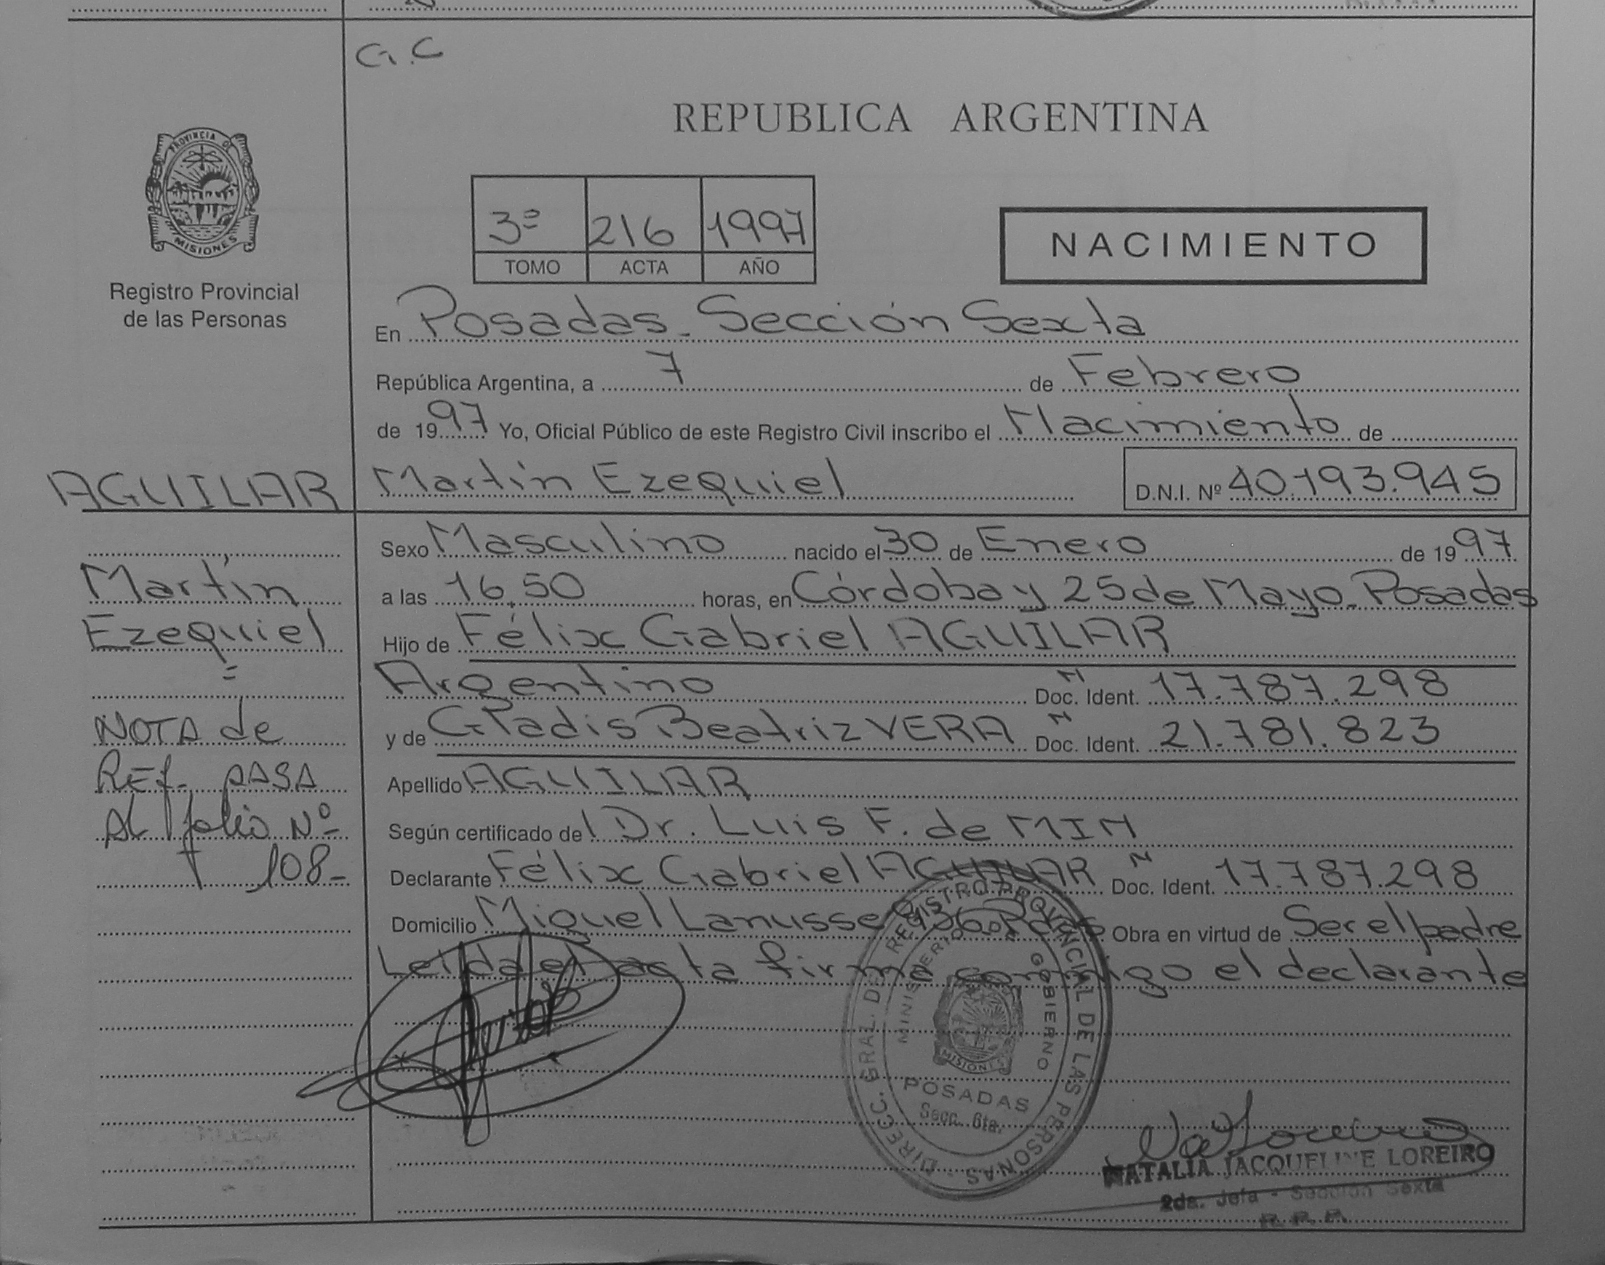 G.C
REPUBLICA ARGENTINA
PROVINCIA DE
MISIONES
Registro Provincial
de las Personas
3º 216 1997
TOMO ACTA AÑO
NACIMIENTO
En Posadas - Sección Sexta
República Argentina, a 7 de Febrero
de 1997 Yo, Oficial Público de este Registro Civil inscribo el Nacimiento de
AGUILAR Martín Ezequiel D.N.I. Nº 40.193.945
Sexo Masculino nacido el 30 de Enero de 1997
Martín
Ezequiel
=
a las 16,50 horas, en Córdoba y 25 de Mayo - Posadas
Hijo de Félix Gabriel AGUILAR
Argentino Doc. Ident. M 17.787.298
y de Gladis Beatriz VERA Doc. Ident. N 21.781.823
NOTA de
REf. PASA
AL folio Nº
108-
Apellido AGUILAR
Según certificado del Dr. Luis F. de MIM
Declarante Félix Gabriel AGUILAR Doc. Ident. N 17.787.298
Domicilio Miguel Lanusse Obra en virtud de Ser el padre
Leída el acta firma conmigo el declarante
DIRECC. GRAL. DEL REGISTRO PROVINCIAL DE LAS PERSONAS
MINISTERIO GOBIERNO
MISIONES
POSADAS
Secc. 6ta.
NATALIA JACQUELINE LOREIRO
2da. Jefa - Sección Sexta
R.P.P.